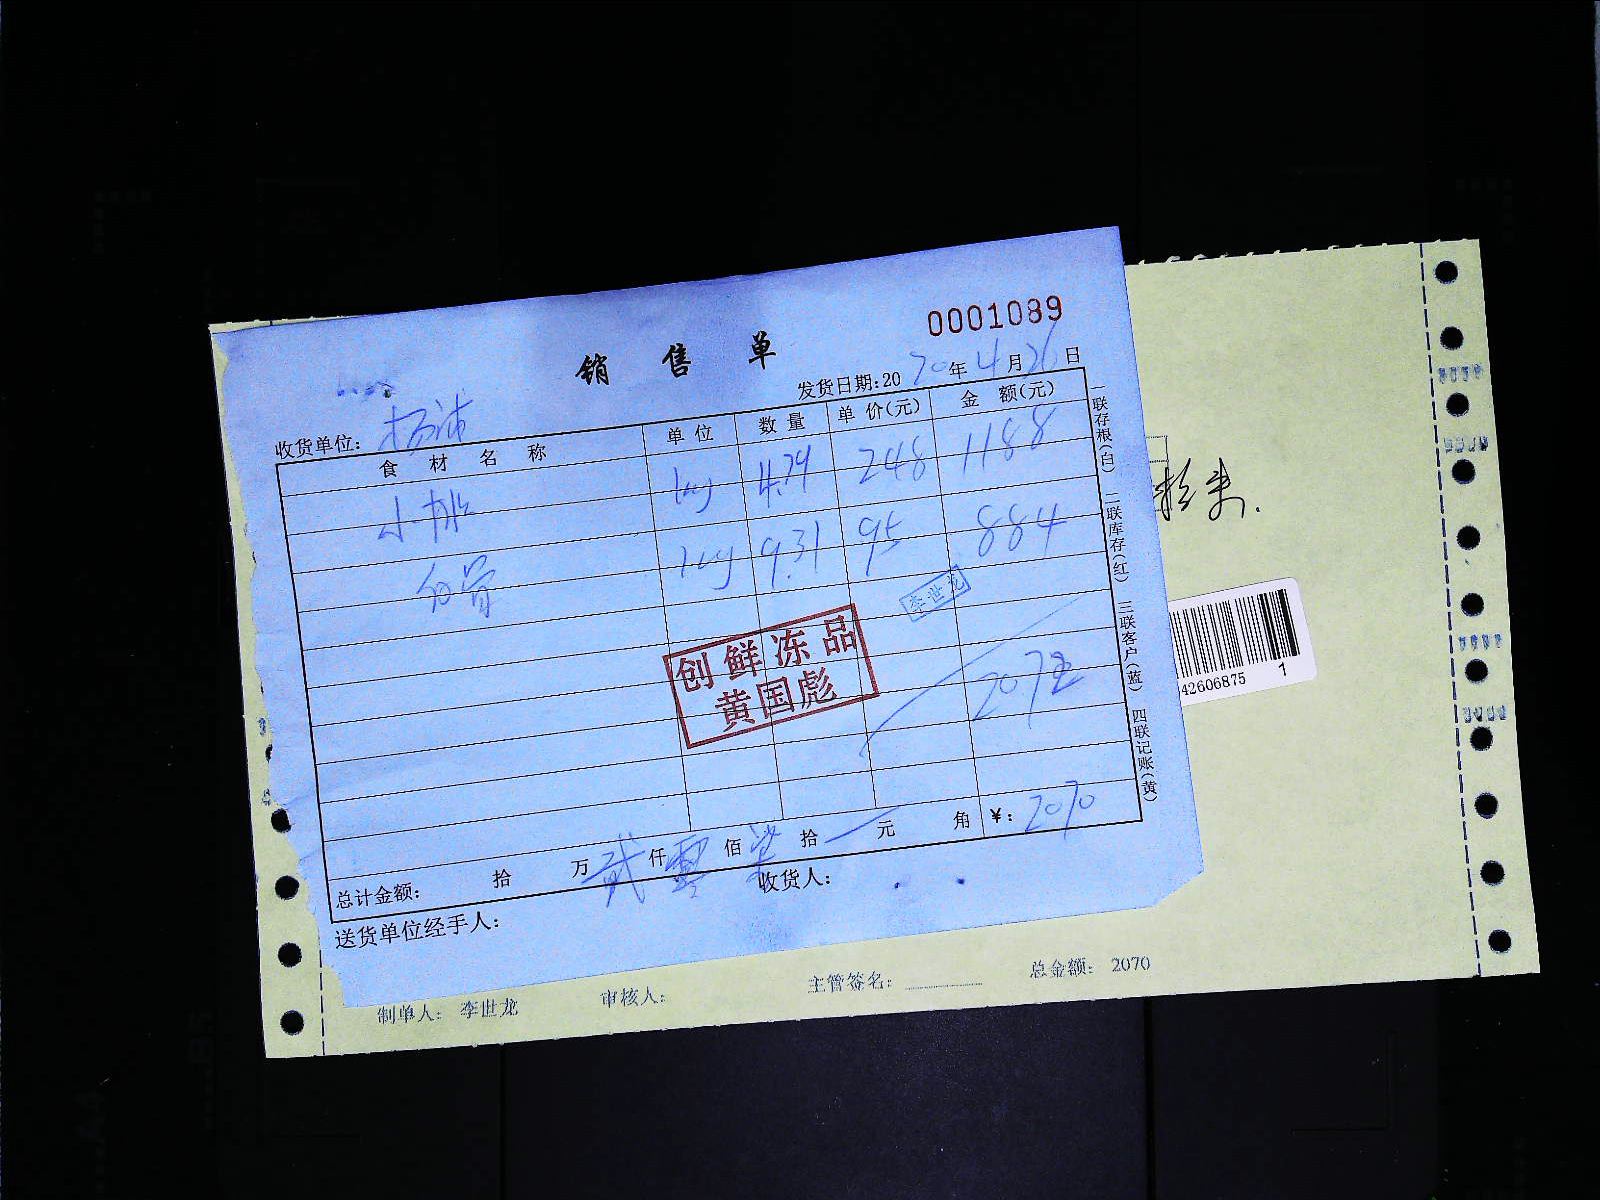 0001089
销售单
发货日期:2020年4月26日
收货单位:
食材名称 单位 数量 单价(元) 金额(元)
小排 kg 4.79 248 1188
kg 9.31 95 884
李世龙
创鲜冻品
黄国彪
2072
总计金额: 拾 万 贰 仟 零 佰 柒 拾 元 角 ¥: 2070
送货单位经手人: 收货人:
一联存根(白) 二联库存(红) 三联客户(蓝) 四联记账(黄)
42606875 1
制单人: 李世龙 审核人: 主管签名: 总金额: 2070